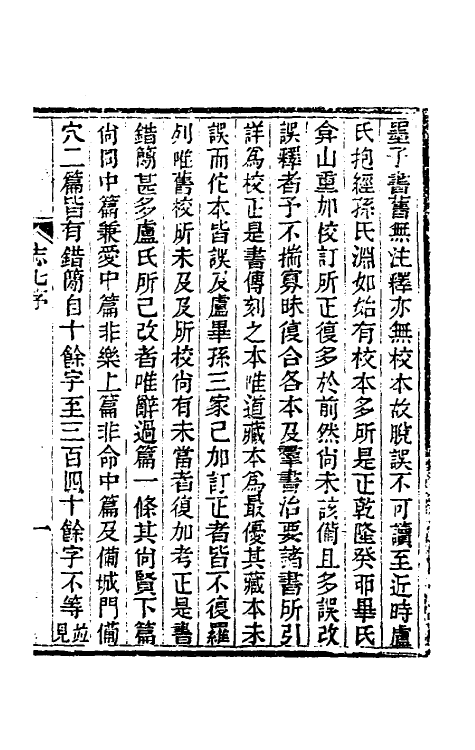 墨子書舊無注釋亦無校本故脫誤不可讀至近時盧
氏抱經孫氏淵如始有校本多所是正乾隆癸卯畢氏
弇山重加校訂所正復多於前然尚未該僃且多誤改
誤釋者予不揣寡昧復合各本及羣書治要諸書所引
詳爲校正是書傳刻之本唯道藏本爲最優其藏本未
誤而佗本皆誤及盧畢孫三家已加訂正者皆不復羅
列唯舊校所未及及所校尚有未當者復加考正是書
錯簡甚多盧氏所已改者唯辭過篇一條其尚賢下篇
尚同中篇兼愛中篇非樂上篇非命中篇及僃城門僃
穴二篇皆有錯簡自十餘字至三百四十餘字不等並見
志七序
一